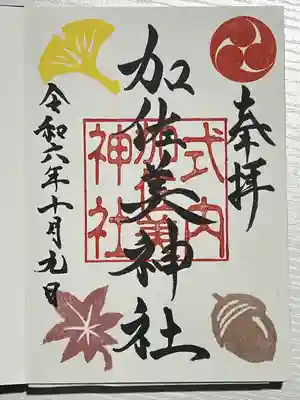 奉拝
加佐美神社
式内
加佐美
神社
令和六年十月九日